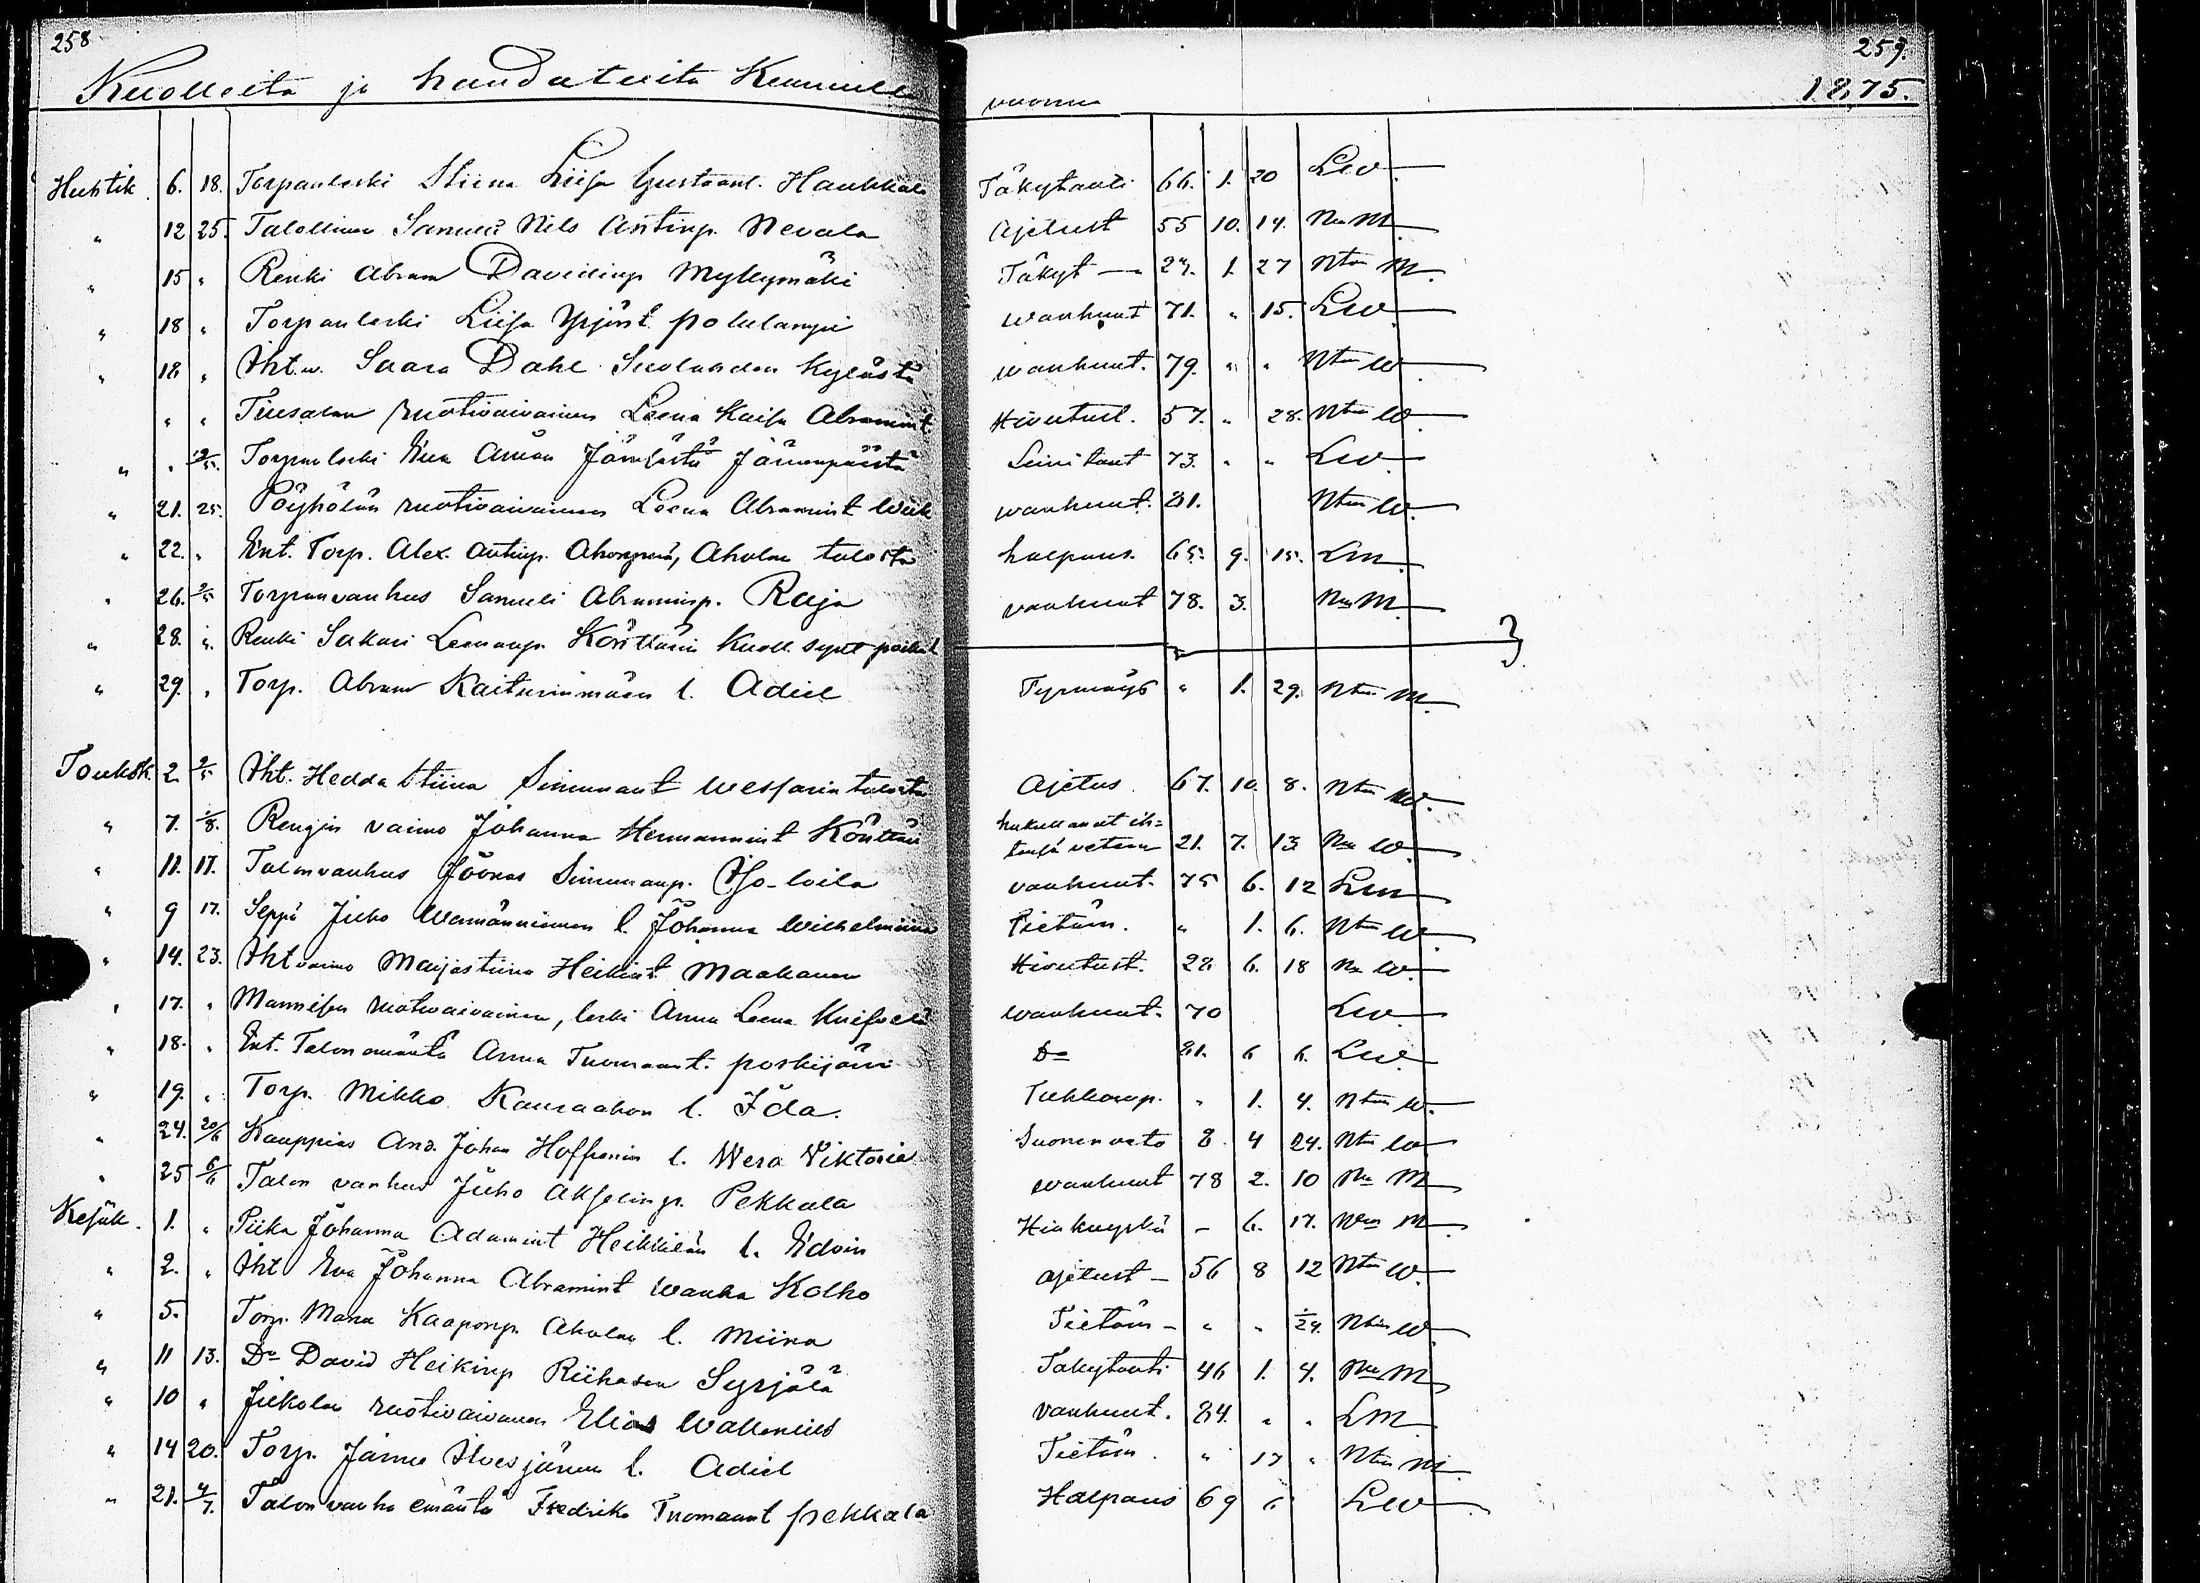 258
259.
Kuolleita ja haudatuita Keuruulla vuonna 1875.
Huhtik. 6. 18. Torpanleski Stiina Liisa Gustaavt. Haukkala Täkytauti 66. 1. 20 Lw.
" 12 25. Talollinen Samuel Nils Antinp. Nevala Ajetust 55 10. 14. Nm M.
" 15 " Renki Abram Davidinp Myllymäki Täkyt — 24. 1. 27 Ntm M.
" 18 " Torpanleski Liisa Yrjönt. wanhuut 71. " 15. Lw.
" 18 " Iht.w. Saara Dahl Suolahden Kylästä wanhuut. 79. " " Ntm W.
" " Tiusalan ruotivaivainen Leena Kaisa Abramint. Hivutust. 57. " 28. Ntm W.
" " 2/5. Torpanleski Eva 73. " " Lw.
" 21. 25. Pöyhölän ruotivaivainen Leena Abramint Wiik wanhuut. 81. Ntm W.
" 22. " Ent. Torp. Alex. Antinp. Aholan talosta halpaus. 65. 9. 15. Lm.
" 26. 2/5 Torpanvanhus Samuli Abraminp. Raja vanhuut 78. 3. Nm M.
" 28. ". Renki Sakari Leenanp. Könttärin Kuoll. synt poikal.
" 29. " Torp. Abram Kaiturinmäen l. Adiel " 1. 29. Ntm M.
Toukok. 2. 2/5 Iht. Hedda Stiina Simunant talosta Ajetus. 67. 10. 8. Ntm W.
" 7. "/8. Rengin vaimo Johanna Hermannint Könttäri hukuttanut it=
tensä veteen 21. 7. 13 Nm W.
" 11. 17. Talonvanhus Joonas Simunanp. Iso-loila vanhuut. 75 6. 12 Lm
" 9 17. Seppä Juho l. Johanna Wilhelmiina Tietäm. " 1. 6. Ntm W.
" 14. 23. Iht vaimo Maijastiina Heikint Maahanen Hivutust. 28 6. 18 Nm W.
" 17. " ruotivaivainen, leski Anna Leena wanhuut. 70 Lw.
" 18. " Ent. Talonemäntä Anna Tuomaant. poskijärvi Do 81. 6 6. Lw.
" 19. " Torp. Mikko Kauraahon l. Ida. Tukkoisup. " 1. 4. Ntm W.
" 24. 20/6 Kauppias And. Johan Hoffrenin l. Wera Viktoria Suonenveto 8. 4 24. Ntm W
" 25 6/6 Talon vanhus Juho Akselinp. Pekkala wanhuut 78 2. 10 Nm M
Kesäk. 1. " Piika Johanna Adamint Heikkilän l. Edvin Hinkuyskä — 6. 17. Ntm M
" 2. " Iht Eva Johanna Abramint wanha Kolho ajetust — 56 8 12 Ntm W.
" 5. Torp. Manu Kaaponp. Aholan l. Miina Tietäm — " " "/24. Ntm W.
" 11 13. Do David Heikinp Riihosen Syrjälä Täkytauti 46 1. 4. Nm M
" 10 " Jukolan ruotivaivainen Elias Wallenius vanhuut. 84. " " LM.
" 14 20. Torp. Janne Ilvesjärven l. Adiel Tietäm. " 17 " Ntm M.
" 21. 4/7. Talon vanha emäntä Fredrika Tuomaant pekkala Halpaus 69 6 Lw